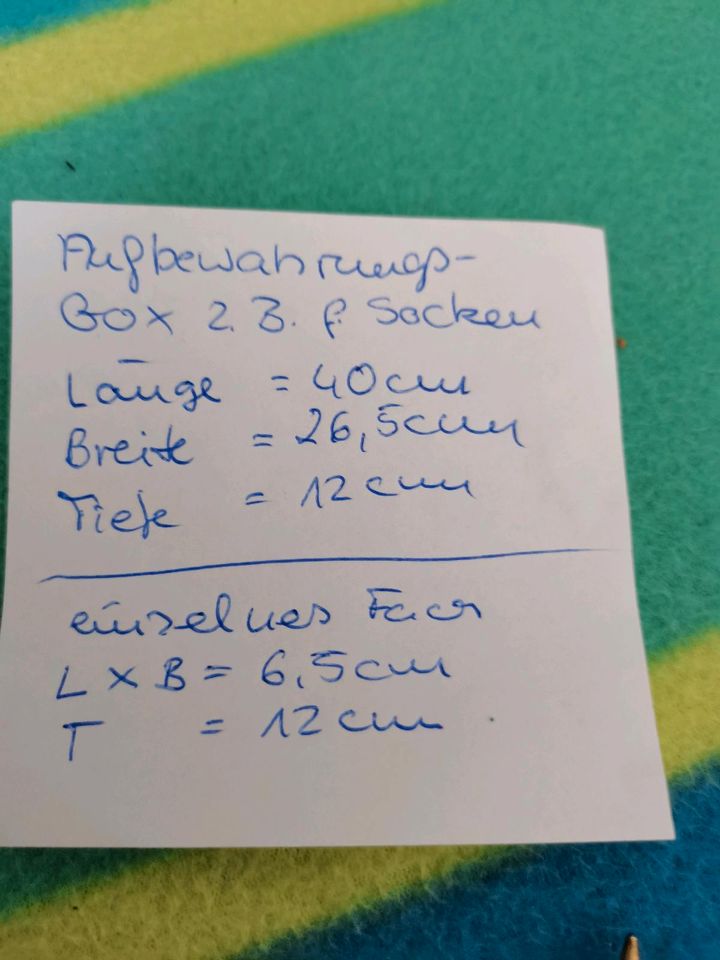 Aufbewahrungs-
Box z.B. f. Socken
Länge = 40cm
Breite = 26,5cm
Tiefe = 12cm
einzelnes Fach
L x B = 6,5cm
T = 12cm